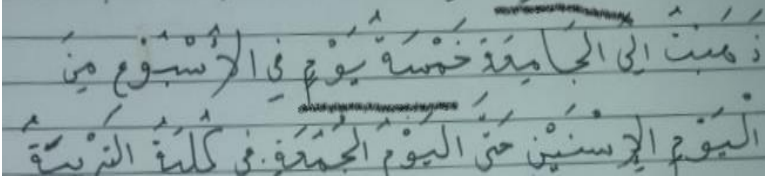 ذَهَبْتُ اِلَى الْجَامِعَةَ خَمْسَةُ يَوْمٍ فِي الاُسْبُوْعِ مِنَ
الْيَوْمِ الإِسْنَيْن حَتَّى الْيَوْمُ الْجُمُعَةِ. فِى كُلِيَةُ التَرْبِيَةُ